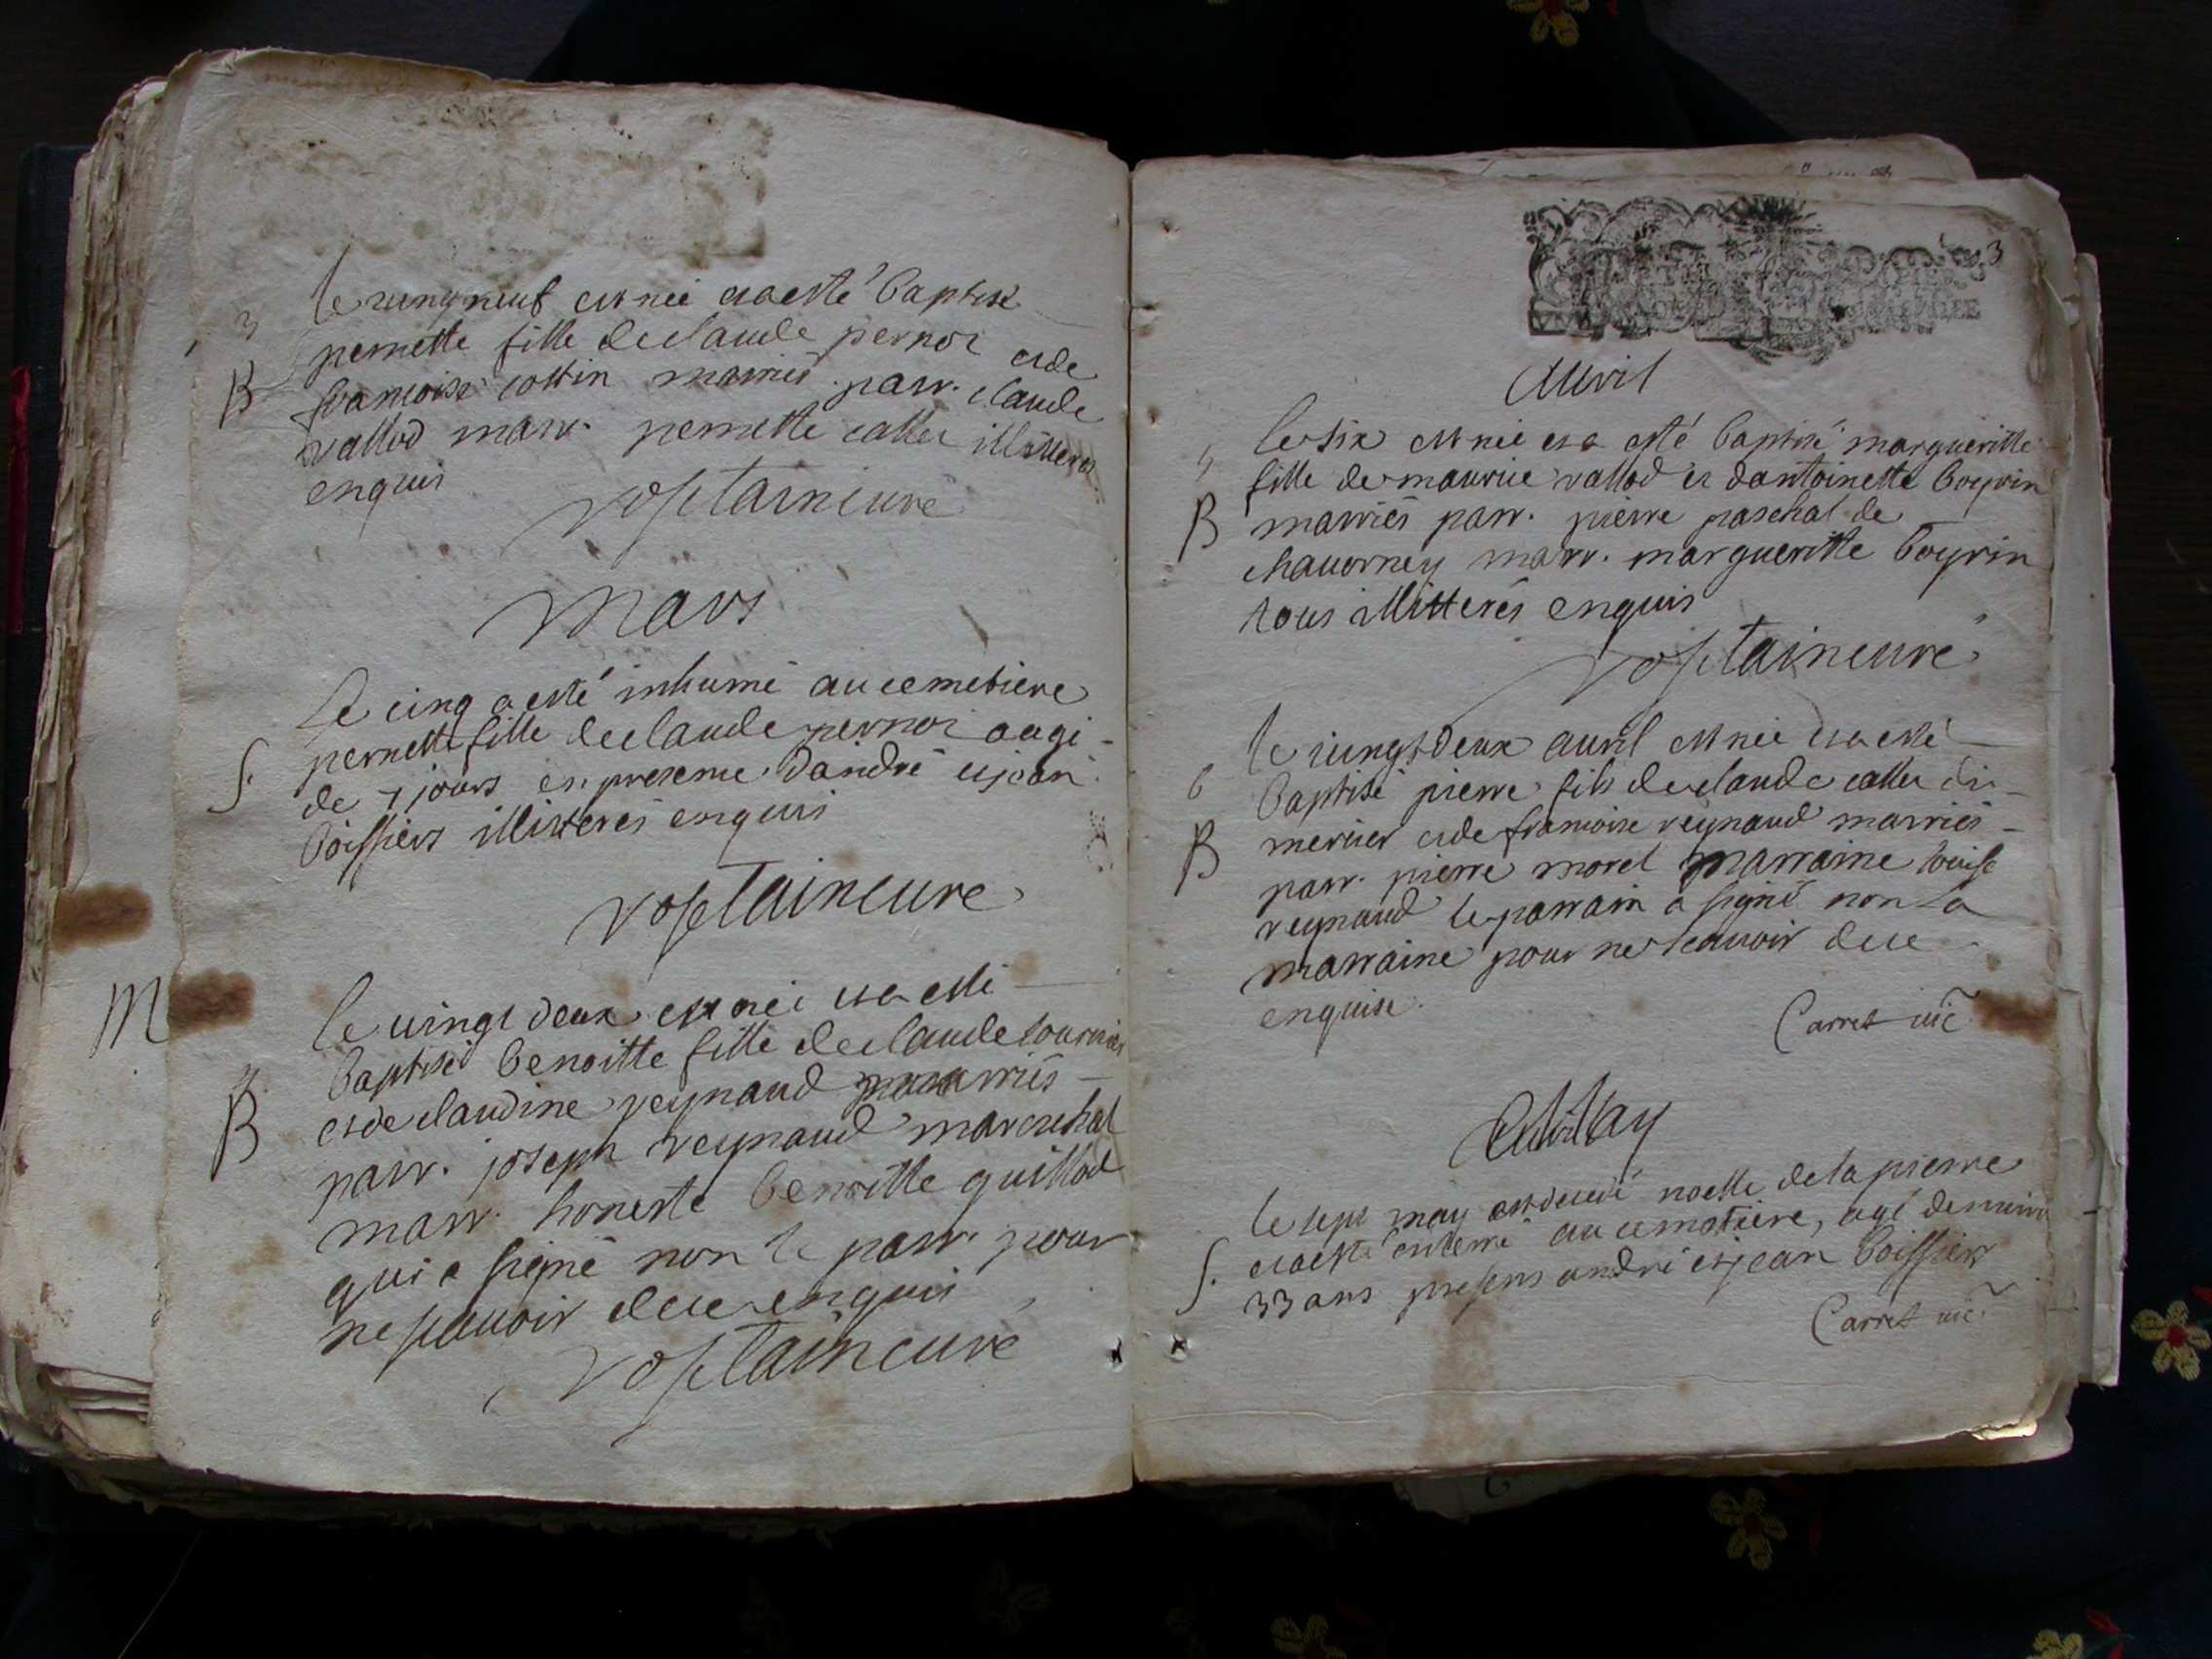 3
le vingt neuf est née et a esté baptisé
pernette fille de claude pernoz et de
B
francoise cottin marriés parr. claude
vallod marr. pernette callet illitterés
enquis
vosetain curé
Mars
Le cinq a esté inhumé au cemetiere
pernette fille de claude pernoz aagé
S.
de 7 jours en presence d'andré et jean
boissiers illitterés enquis
vosetain curé
M
le vingt deux est née et a esté
baptisé benoitte fille de claude
B
et de claudine reynaud marriés
parr. joseph reynaud mareschal
marr. honeste benoitte quillod
qui a signé non le parr. pour
ne scavoir de ce enquis
vosetain curé
3
Avril
le six est née et a esté baptisé margueritte
5
fille de maurice vallod et d'antoinette boyrin
B
marriés parr. pierre paschal de
chavorney marr. margueritte boyrin
tous illitterés enquis
vosetain curé
le vingt deux avril est née et a esté
6
baptisé pierre fils de claude callet dit
B
mercier et de francoise reynaud marriés
parr. pierre morel marraine louise
reynaud le parrain a signé non la
marraine pour ne scavoir de ce
enquise.
Carret vic.
May
le sept may est decedé noelle de la pierre
et a esté enterré au cemetiere, agé d'environ
S.
33 ans presens andré et jean boissiers
Carret vic.